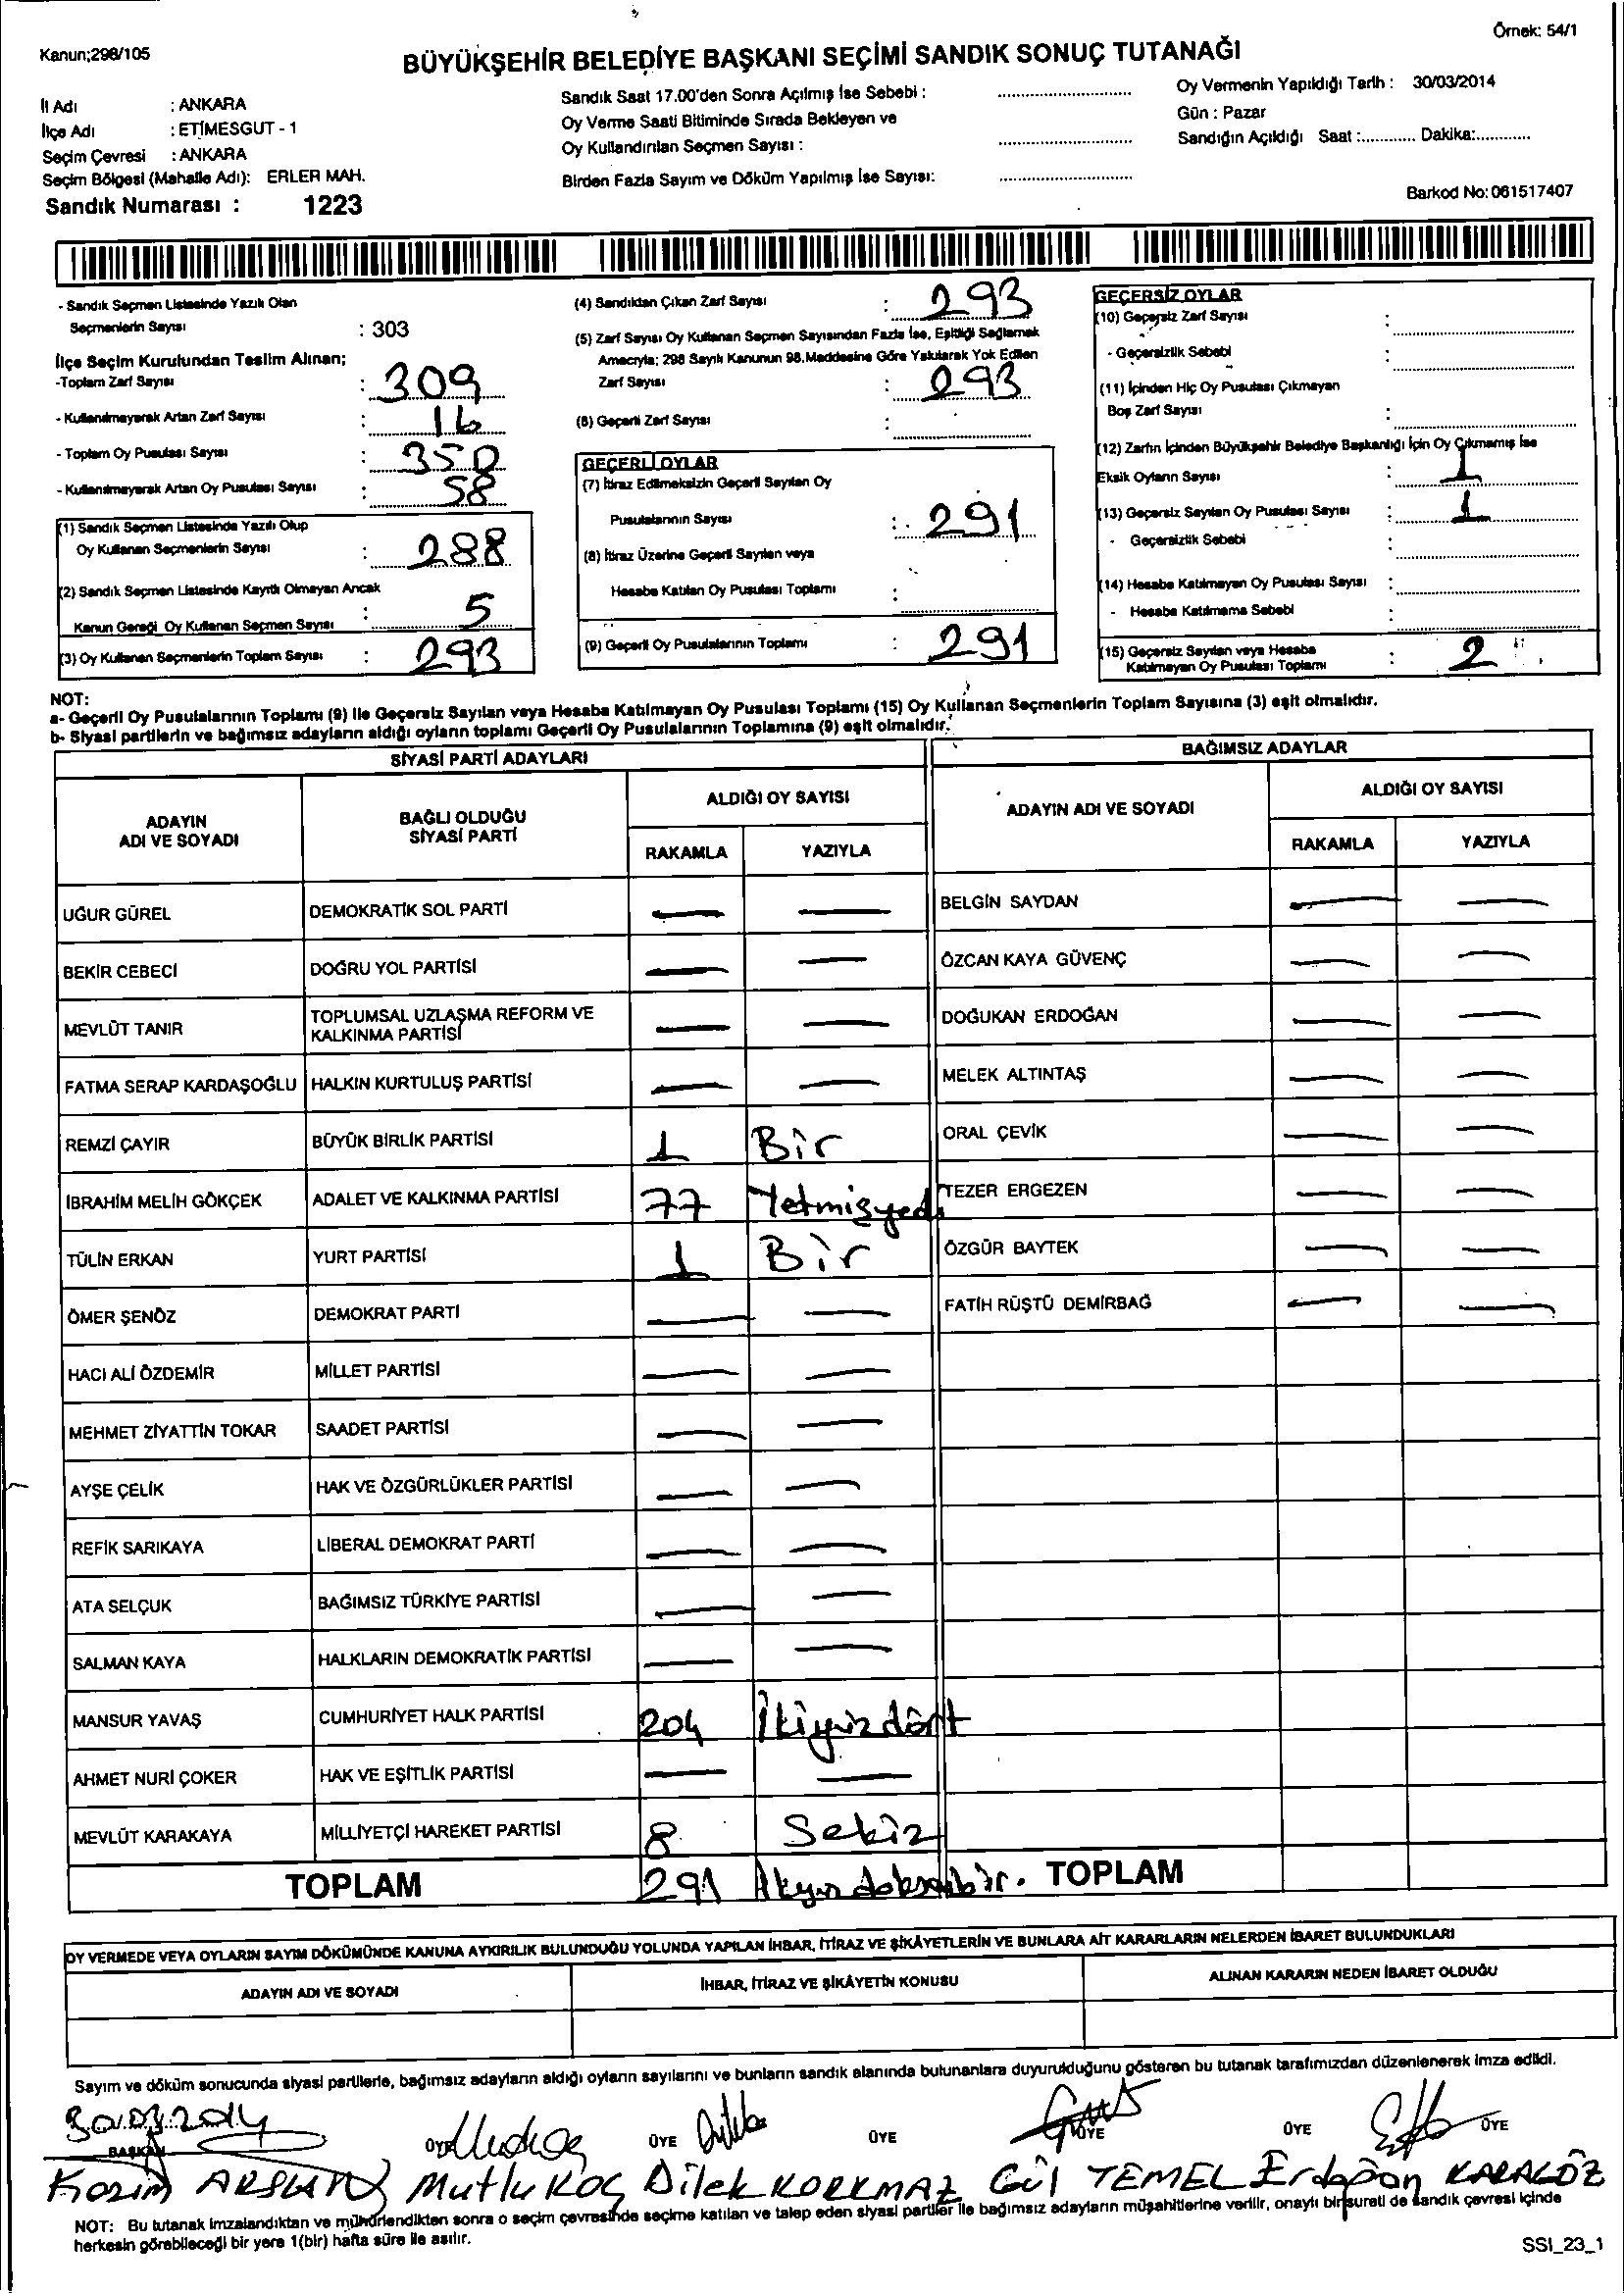 Örnek: 54/1
Kanun;298/105
BÜYÜKŞEHİR BELEDİYE BAŞKANI SEÇİMİ SANDIK SONUÇ TUTANAĞI
İl Adı : ANKARA
İlçe Adı : ETİMESGUT - 1
Seçim Çevresi : ANKARA
Seçim Bölgesi (Mahalle Adı): ERLER MAH.
Sandık Numarası : 1223
Sandık Saat 17.00'den Sonra Açılmış İse Sebebi :
Oy Verme Saati Bitiminde Sırada Bekleyen ve
Oy Kullandırılan Seçmen Sayısı :
Birden Fazla Sayım ve Döküm Yapılmış İse Sayısı:
Oy Vermenin Yapıldığı Tarih : 30/03/2014
Gün : Pazar
Sandığın Açıldığı Saat :............ Dakika:............
Barkod No:061517407
- Sandık Seçmen Listesinde Yazılı Olan
Seçmenlerin Sayısı : 303
İlçe Seçim Kurulundan Teslim Alınan;
-Toplam Zarf Sayısı : 309
- Kullanılmayarak Artan Zarf Sayısı : 16
- Toplam Oy Pusulası Sayısı : 350
- Kullanılmayarak Artan Oy Pusulası Sayısı : 58
(1) Sandık Seçmen Listesinde Yazılı Olup
Oy Kullanan Seçmenlerin Sayısı : 288
(2) Sandık Seçmen Listesinde Kayıtlı Olmayan Ancak
Kanun Gereği Oy Kullanan Seçmen Sayısı : 5
(3) Oy Kullanan Seçmenlerin Toplam Sayısı : 293
(4) Sandıktan Çıkan Zarf Sayısı : 293
(5) Zarf Sayısı Oy Kullanan Seçmen Sayısından Fazla İse, Eşitliği Sağlamak
Amacıyla; 298 Sayılı Kanunun 98.Maddesine Göre Yakılarak Yok Edilen
Zarf Sayısı : 293
(6) Geçerli Zarf Sayısı :
GEÇERLİ OYLAR
(7) İtiraz Edilmeksizin Geçerli Sayılan Oy
Pusulalarının Sayısı : 291
(8) İtiraz Üzerine Geçerli Sayılan veya
Hesaba Katılan Oy Pusulası Toplamı :
(9) Geçerli Oy Pusulalarının Toplamı : 291
GEÇERSİZ OYLAR
(10) Geçersiz Zarf Sayısı :
- Geçersizlik Sebebi :
(11) İçinden Hiç Oy Pusulası Çıkmayan
Boş Zarf Sayısı :
(12) Zarfın İçinden Büyükşehir Belediye Başkanlığı İçin Oy Çıkmamış İse
Eksik Oyların Sayısı : 1
(13) Geçersiz Sayılan Oy Pusulası Sayısı : 1
- Geçersizlik Sebebi :
(14) Hesaba Katılmayan Oy Pusulası Sayısı :
- Hesaba Katılmama Sebebi :
(15) Geçersiz Sayılan veya Hesaba
Katılmayan Oy Pusulası Toplamı : 2
NOT:
a- Geçerli Oy Pusulalarının Toplamı (9) ile Geçersiz Sayılan veya Hesaba Katılmayan Oy Pusulası Toplamı (15) Oy Kullanan Seçmenlerin Toplam Sayısına (3) eşit olmalıdır.
b- Siyasi partilerin ve bağımsız adayların aldığı oyların toplamı Geçerli Oy Pusulalarının Toplamına (9) eşit olmalıdır.
SİYASİ PARTİ ADAYLARI
ADAYIN
ADI VE SOYADI
BAĞLI OLDUĞU
SİYASİ PARTİ
ALDIĞI OY SAYISI
RAKAMLA YAZIYLA
UĞUR GÜREL DEMOKRATİK SOL PARTİ — —
BEKİR CEBECİ DOĞRU YOL PARTİSİ — —
MEVLÜT TANIR TOPLUMSAL UZLAŞMA REFORM VE
KALKINMA PARTİSİ — —
FATMA SERAP KARDAŞOĞLU HALKIN KURTULUŞ PARTİSİ — —
REMZİ ÇAYIR BÜYÜK BİRLİK PARTİSİ 1 Bir
İBRAHİM MELİH GÖKÇEK ADALET VE KALKINMA PARTİSİ 77 Yetmişyedi
TÜLİN ERKAN YURT PARTİSİ 1 Bir
ÖMER ŞENÖZ DEMOKRAT PARTİ — —
HACI ALİ ÖZDEMİR MİLLET PARTİSİ — —
MEHMET ZİYATTİN TOKAR SAADET PARTİSİ — —
AYŞE ÇELİK HAK VE ÖZGÜRLÜKLER PARTİSİ — —
REFİK SARIKAYA LİBERAL DEMOKRAT PARTİ — —
ATA SELÇUK BAĞIMSIZ TÜRKİYE PARTİSİ — —
SALMAN KAYA HALKLARIN DEMOKRATİK PARTİSİ — —
MANSUR YAVAŞ CUMHURİYET HALK PARTİSİ 204 İkiyüzdört
AHMET NURİ ÇOKER HAK VE EŞİTLİK PARTİSİ — —
MEVLÜT KARAKAYA MİLLİYETÇİ HAREKET PARTİSİ 8 Sekiz
TOPLAM 291 İkiyüzdoksanbir.
BAĞIMSIZ ADAYLAR
ADAYIN ADI VE SOYADI
ALDIĞI OY SAYISI
RAKAMLA YAZIYLA
BELGİN SAYDAN — —
ÖZCAN KAYA GÜVENÇ — —
DOĞUKAN ERDOĞAN — —
MELEK ALTINTAŞ — —
ORAL ÇEVİK — —
TEZER ERGEZEN — —
ÖZGÜR BAYTEK — —
FATİH RÜŞTÜ DEMİRBAĞ — —
TOPLAM
OY VERMEDE VEYA OYLARIN SAYIM DÖKÜMÜNDE KANUNA AYKIRILIK BULUNDUĞU YOLUNDA YAPILAN İHBAR, İTİRAZ VE ŞİKÂYETLERİN VE BUNLARA AİT KARARLARIN NELERDEN İBARET BULUNDUKLARI
ADAYIN ADI VE SOYADI İHBAR, İTİRAZ VE ŞİKÂYETİN KONUSU ALINAN KARARIN NEDEN İBARET OLDUĞU
Sayım ve döküm sonucunda siyasi partilerle, bağımsız adayların aldığı oyların sayılarını ve bunların sandık alanında bulunanlara duyurulduğunu gösteren bu tutanak tarafımızdan düzenlenerek imza edildi.
30.03.2014
BAŞKAN ÜYE ÜYE ÜYE ÜYE ÜYE ÜYE
Kazım ARSLAN Mutlu KOÇ Dilek KORKMAZ Gül TEMEL Erdoğan KARAGÖZ
NOT: Bu tutanak imzalandıktan ve mühürlendikten sonra o seçim çevresinde seçime katılan ve talep eden siyasi partiler ile bağımsız adayların müşahitlerine verilir, onaylı bir sureti de sandık çevresi içinde
herkesin görebileceği bir yere 1(bir) hafta süre ile asılır.
SSI_23_1